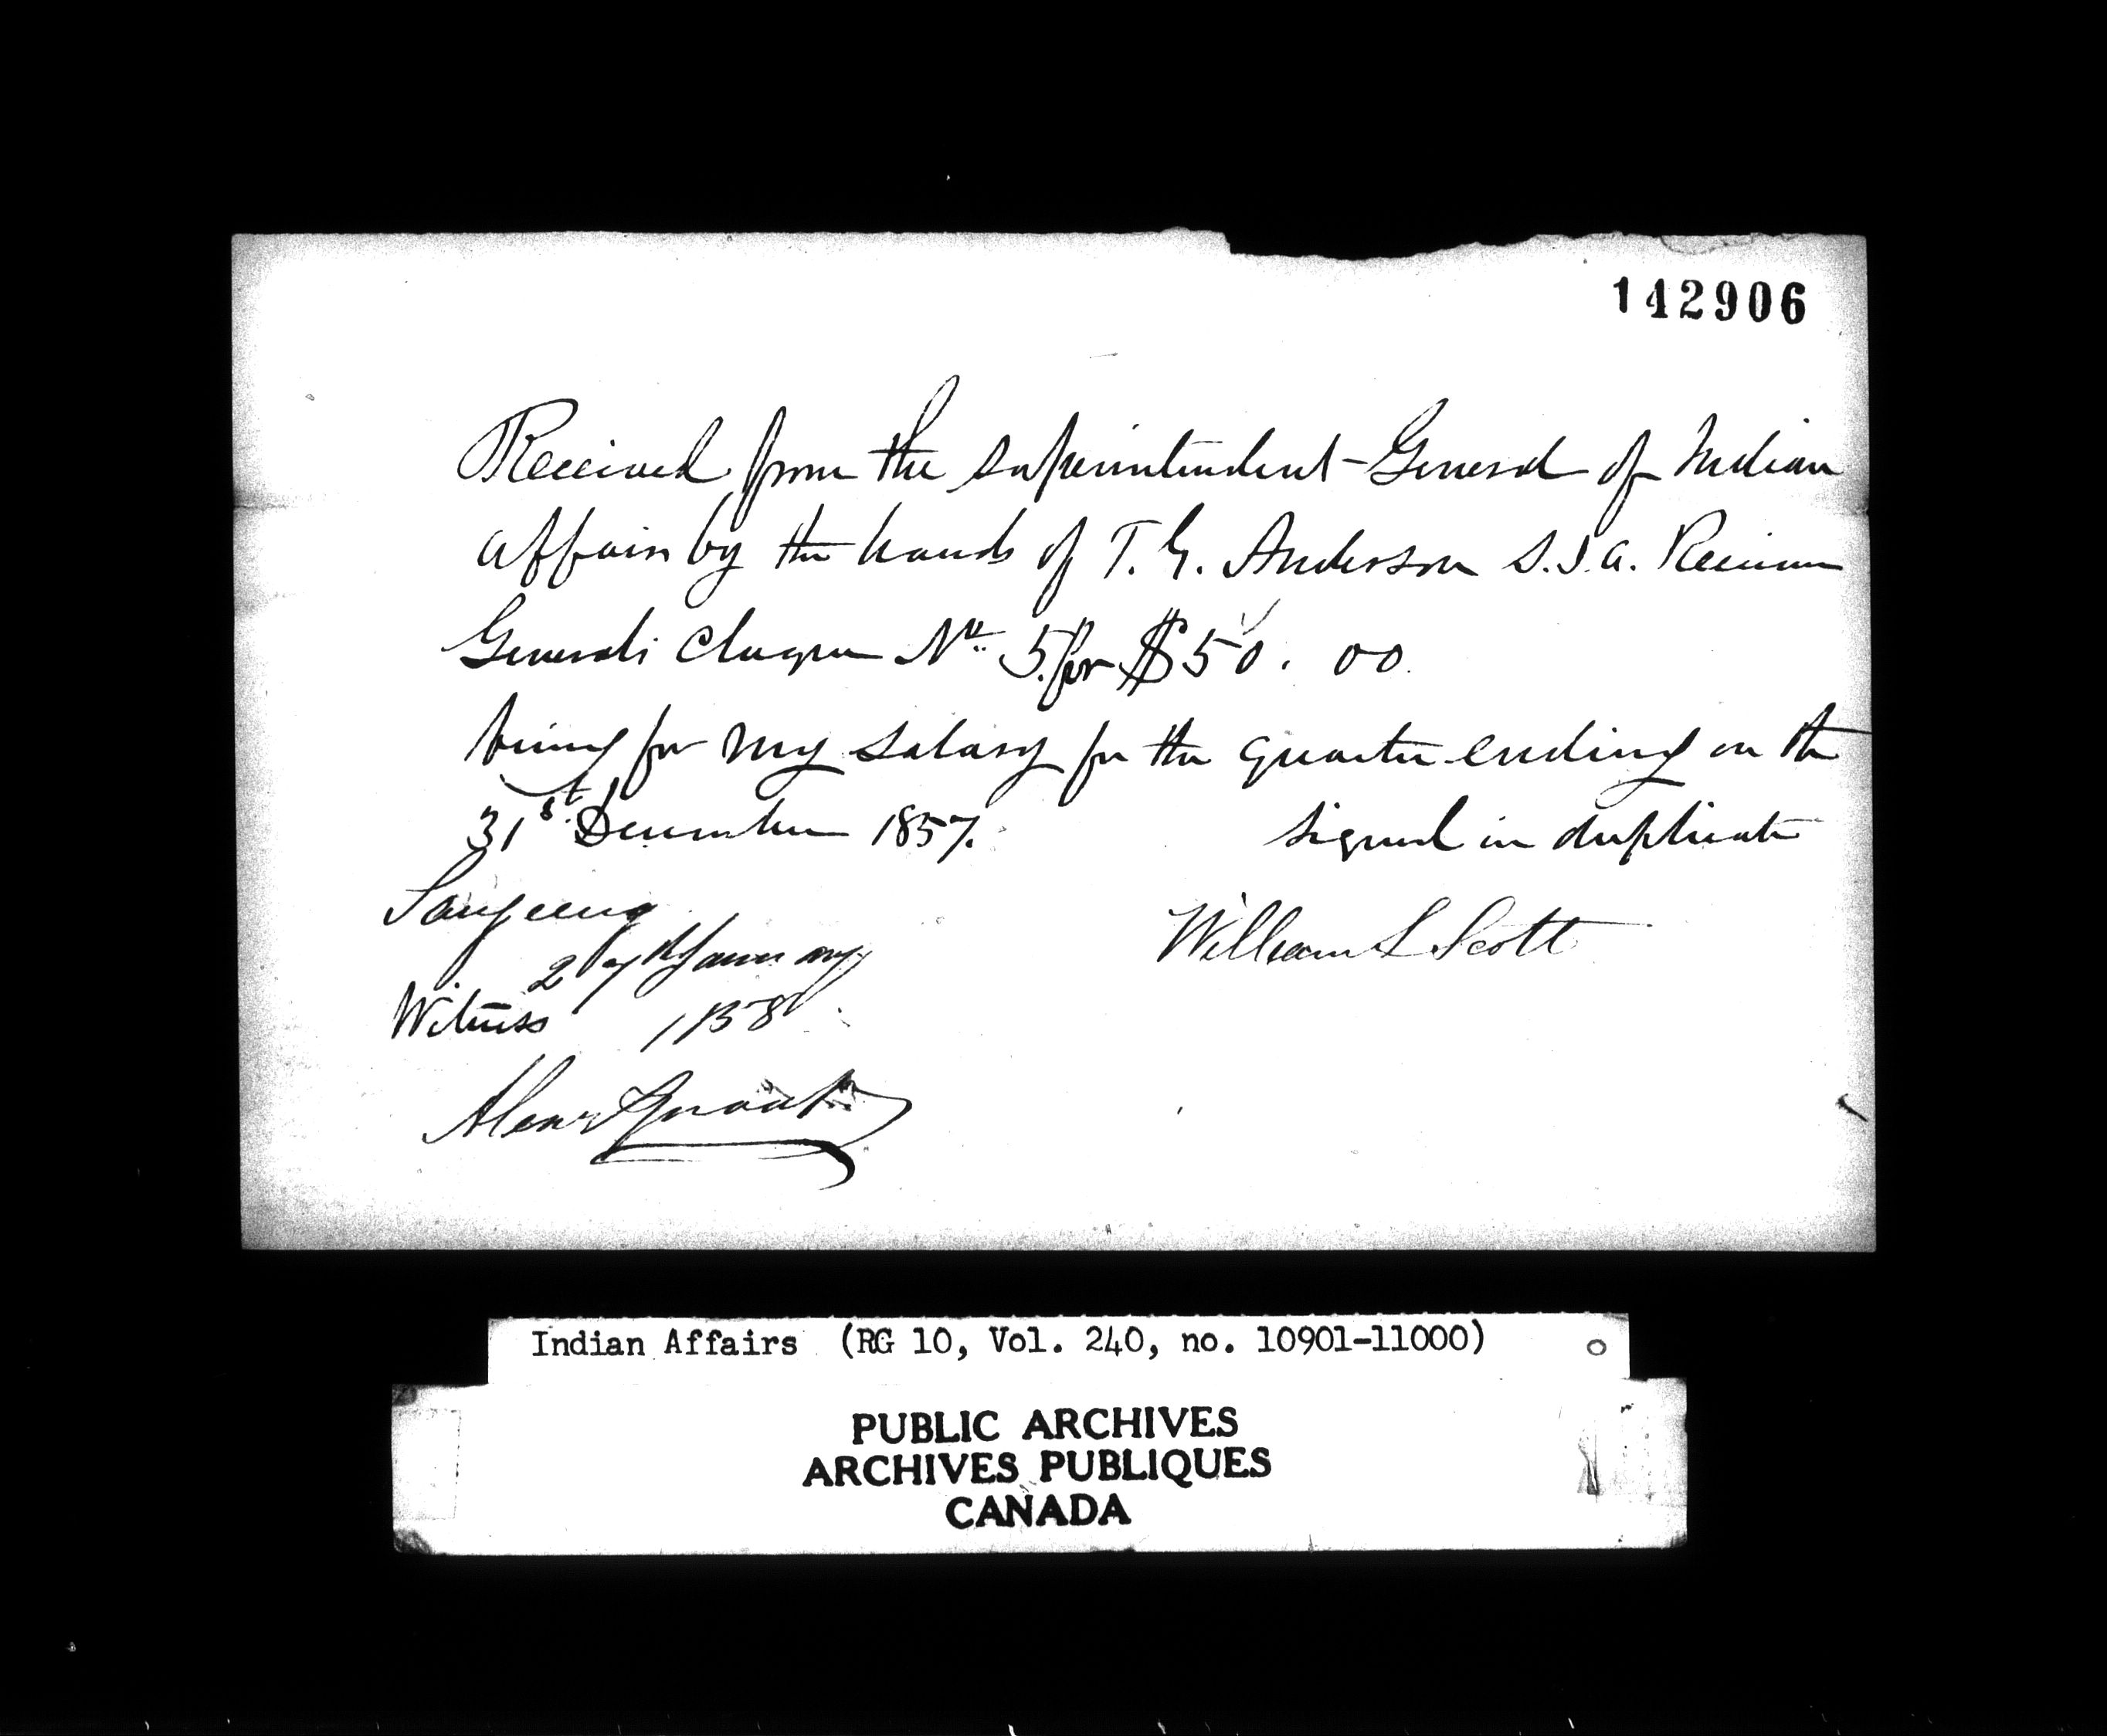 142906
Received from the Superintendent-General of Indian
affairs by the hands of T. G. Anderson S.I.A. Receiver
Generals Cheque No. 5 for $50.00
being for my salary for the quarter ending on the
31st December 1857.
signed in duplicate
Saugeeng
27th January
William S Scott
Witness 1858
Alexr
Indian Affairs (RG 10, Vol. 240, no. 10901-11000)
PUBLIC ARCHIVES
ARCHIVES PUBLIQUES
CANADA